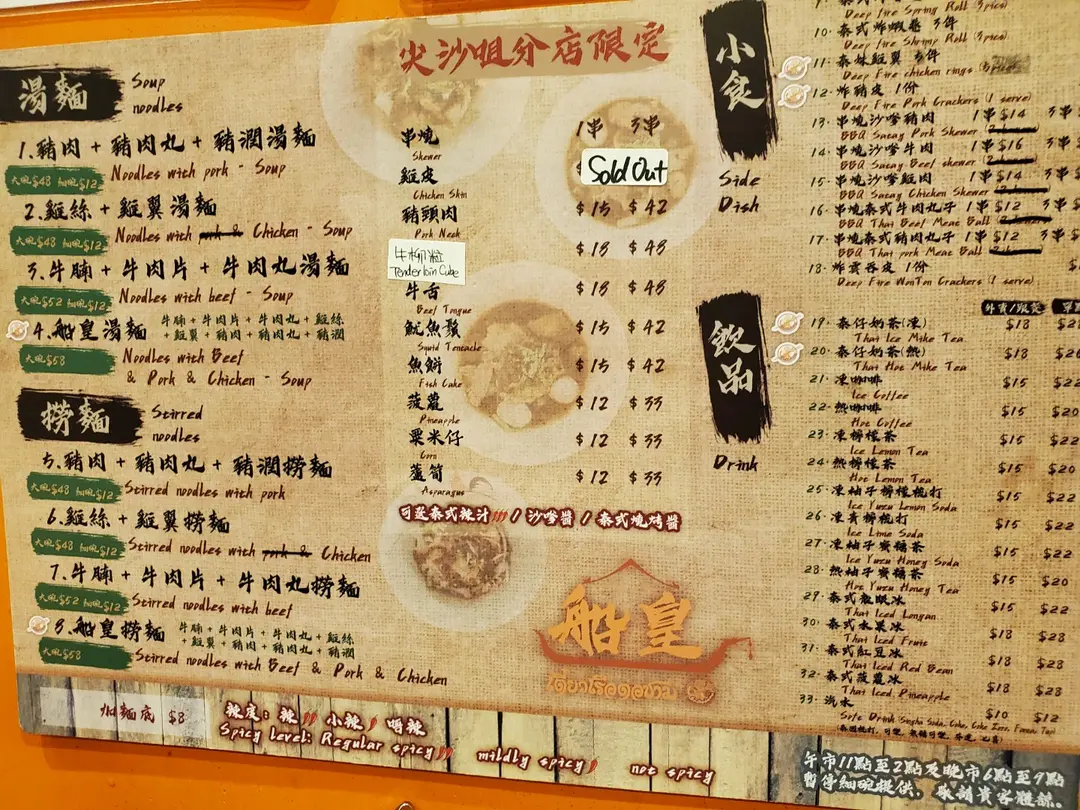 湯麵
Soup
noodles
1.豬肉 + 豬肉丸 + 豬潤湯麵
大風$48 加風$12
Noodles with pork - Soup
2.雞絲 + 雞翼湯麵
Noodles with pork & Chicken - Soup
3.牛腩 + 牛肉片 + 牛肉丸湯麵
Noodles with beef - Soup
4.船皇湯麵
牛腩 + 牛肉片 + 牛肉丸 + 雞絲
+ 雞翼 + 豬肉 + 豬肉丸 + 豬潤
Noodles with Beef
& Pork & Chicken - Soup
撈麵
Stirred
noodles
5.豬肉 + 豬肉丸 + 豬潤撈麵
Stirred noodles with pork
6.雞絲 + 雞翼撈麵
Stirred noodles with pork & Chicken
7.牛腩 + 牛肉片 + 牛肉丸撈麵
Stirred noodles with beef
8.船皇撈麵
牛腩 + 牛肉片 + 牛肉丸 + 雞絲
+ 雞翼 + 豬肉 + 豬肉丸 + 豬潤
Stirred noodles with Beef & Pork & Chicken
加麵底 $8
辣度: 辣 小辣 唔辣
Spicy Level: Regular spicy mildly spicy not spicy
尖沙咀分店限定
串燒 1串 3串
Skewer
雞皮 Sold Out
Chicken Skin
豬頭肉 $15 $42
Pork Neck
牛柳粒 $18 $48
Tenderloin Cube
牛舌 $18 $48
Beef Tongue
魷魚鬚 $15 $42
Squid Tentacle
魚餅 $15 $42
Fish Cake
菠蘿 $12 $33
Pineapple
粟米仔 $12 $33
Corn
蘆筍 $12 $33
Asparagus
可送泰式辣汁 / 沙嗲醬 / 泰式燒烤醬
船皇
小食
Side
Dish
Deep Fire Spring Roll (3pics)
10. 泰式炸蝦卷 3件
Deep fire Shrimp Roll (3pics)
11. 泰妹雞翼 3件
Deep Fire chicken rings
12. 炸豬皮 1份
Deep Fire Pork Crackers (1 serve)
13. 串燒沙嗲豬肉 1串$14
BBQ Satay Pork Skewer
14. 串燒沙嗲牛肉 1串$16
BBQ Satay Beef skewer
15. 串燒沙嗲雞肉 1串$14
BBQ Satay Chicken Skewer
16. 串燒泰式牛肉丸子 1串$12
BBQ Thai Beef Meat Ball
17. 串燒泰式豬肉丸子 1串$12
BBQ Thai pork Meat Ball
18. 炸雲吞皮 1份
Deep Fire WonTon Crackers (1 serve)
飲品
Drink
19. 泰仔奶茶(凍) $18
Thai Ice Mike Tea
20. 泰仔奶茶(熱) $18
Thai Hot Mike Tea
21. 凍咖啡 $15 $22
Ice Coffee
22. 熱咖啡 $15 $20
Hot Coffee
23. 凍檸檬茶 $15 $22
Ice Lemon Tea
24. 熱檸檬茶 $15 $20
Hot Lemon Tea
25. 凍柚子檸檬梳打 $15 $22
Ice Yuzu Lemon Soda
26. 凍青檸梳打 $15 $22
Ice Lime Soda
27. 凍柚子蜜糖茶 $15 $22
Ice Yuzu Honey Soda
28. 熱柚子蜜糖茶 $15 $20
Hot Yuzu Honey Tea
29. 泰式龍眼冰 $15 $22
Thai Iced Longan
30. 泰式水果冰 $18 $28
Thai Iced Fruit
31. 泰式紅豆冰 $18 $28
Thai Iced Red Bean
32. 泰式菠蘿冰 $18 $28
Thai Iced Pineapple
33. 汽水 $10 $12
午市11點至2點及晚市6點至9點
暫停細碗提供, 敬請貴客體諒..